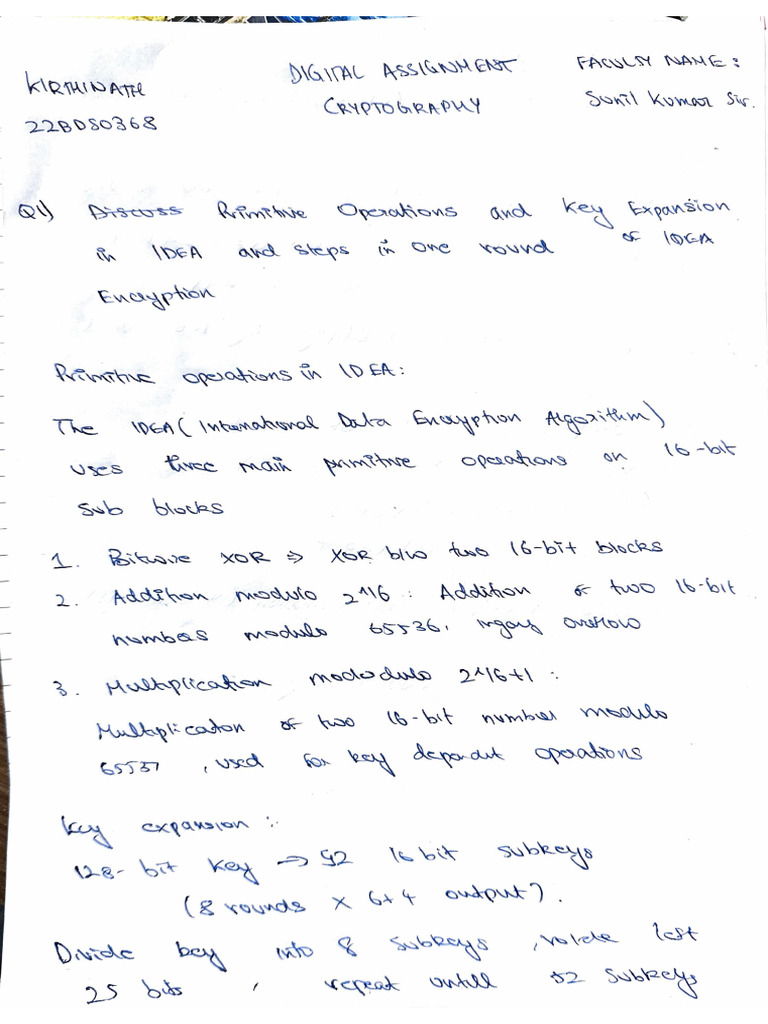 KIRTHINATH
22BDS0368
DIGITAL ASSIGNMENT
CRYPTOGRAPHY
FACULTY NAME :
Sunil Kumar Sir.
Q1) Discuss Primitive Operations and Key Expansion
in IDEA and steps in one round of IDEA
Encryption
Primitive operations in IDEA :
The IDEA ( International Data Encryption Algorithm)
uses three main primitive operations on 16-bit
sub blocks
1. Bitwise XOR ⇒ XOR b/w two 16-bit blocks
2. Addition modulo 2^16 : Addition of two 16-bit
numbers modulo 65536, overflow
3. Multiplication mododulo 2^16+1 :
Multiplication of two 16-bit number modulo
65537 , used for key dependent operations
Key expansion :-
128- bit key → 52 16 bit subkeys
(8 rounds x 6+4 output).
Divide key into 8 subkeys , left
25 bits , repeat untill 52 subkeys